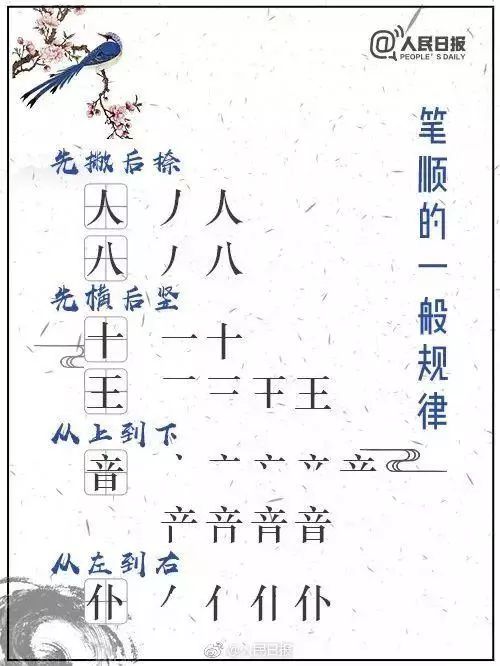 @人民日报
PEOPLE'S DAILY
笔顺的一般规律
先撇后捺
人 丿 人
八 丿 八
先横后竖
十 一 十
王 一 二 干 王
从上到下
音 丶 亠 立
产 咅 音 音
从左到右
仆 丿 亻 仆
@人民日报